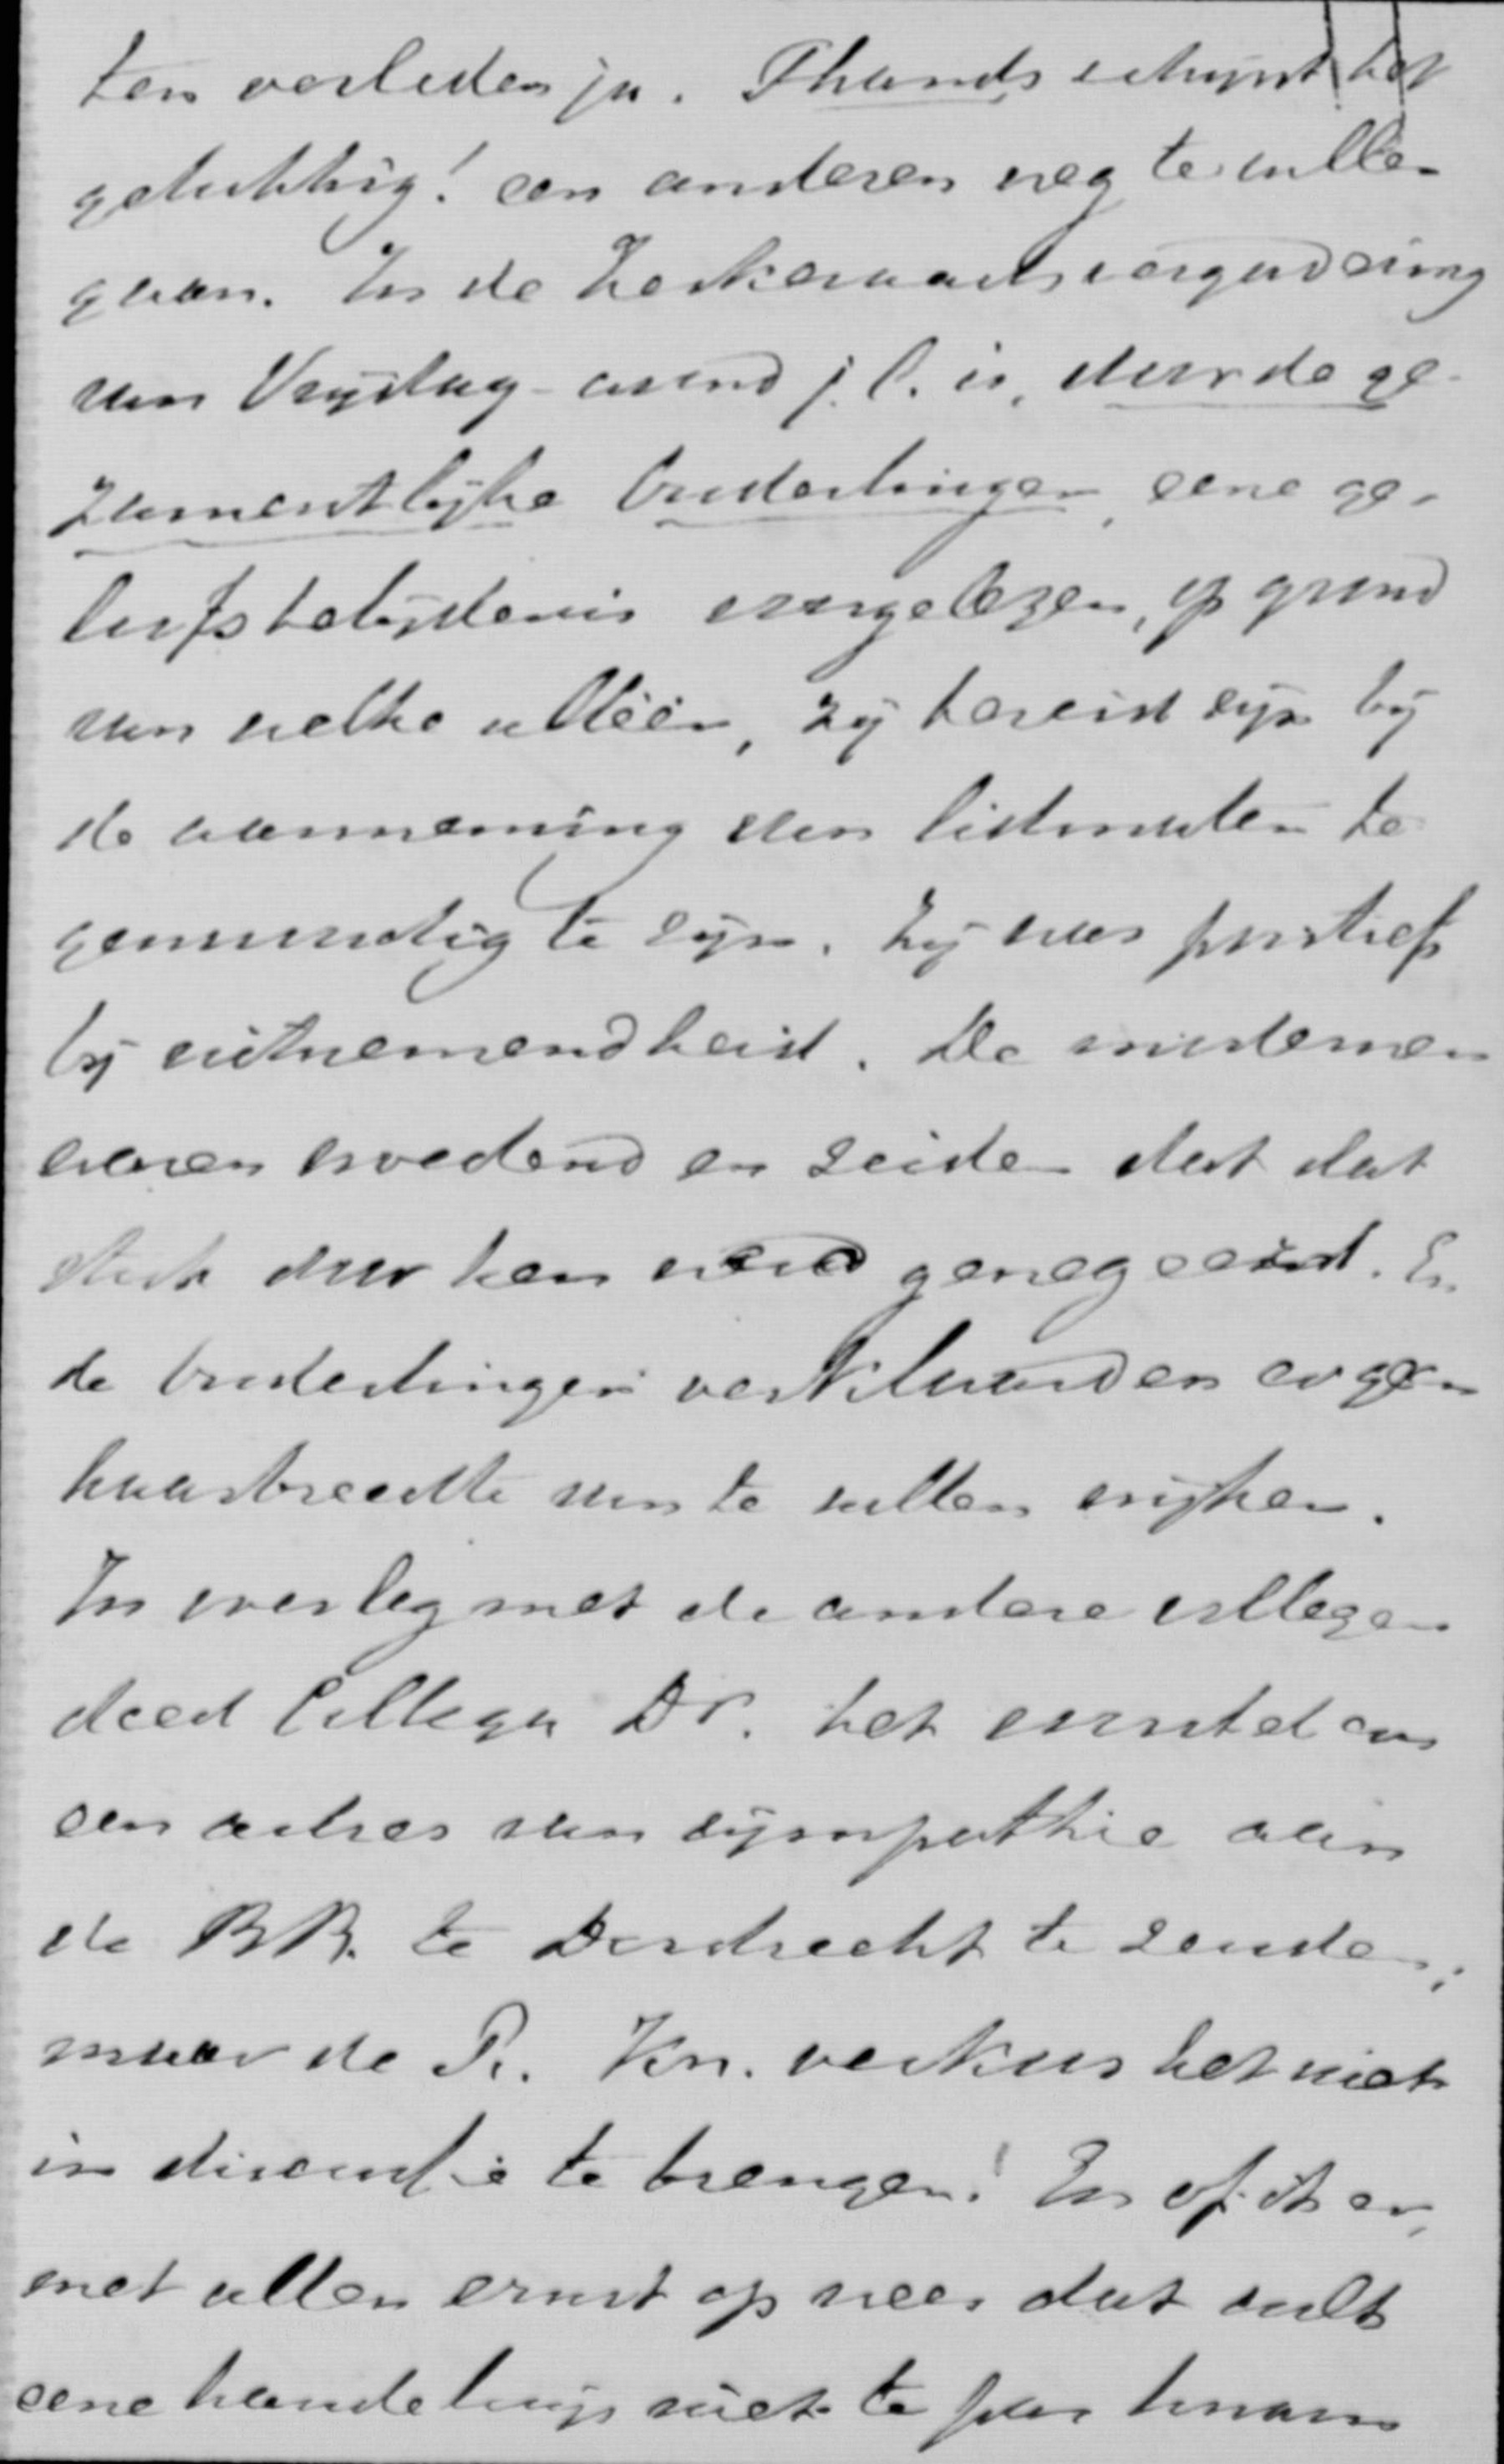 ten verleden ja. Thands schijnt het
gelukkig! een anderen weg te zullen
gaan. In de Kerkeraadsvergadering
van Vrijdag-avond j.l. is, door de ge-
zamentlijke Ouderlingen, eene ge-
loofsbelijdenis voorgelezen, op grond
van welke alléén, zij bereid zijn bij
de aanneming van lidmaten te-
genwoordig te zijn. Zij was positief
bij uitnemendheid. De modernen
waren woedend en zeiden dat dat
stuk door hen werd genegeerd. En
de Ouderlingen verklaarden er geen
haarbreedte van te zullen wijken.
In overleg met de andere collegen
deed Collega Dr. het voorstel om
een adres van sympathie aan
de BB. te Dordrecht te zenden;
maar de P. Kr. verkoos het niet
in discussie te brengen! En of ik er,
met allen ernst op wees dat zulk
eene handelwijs niet te pas kwam